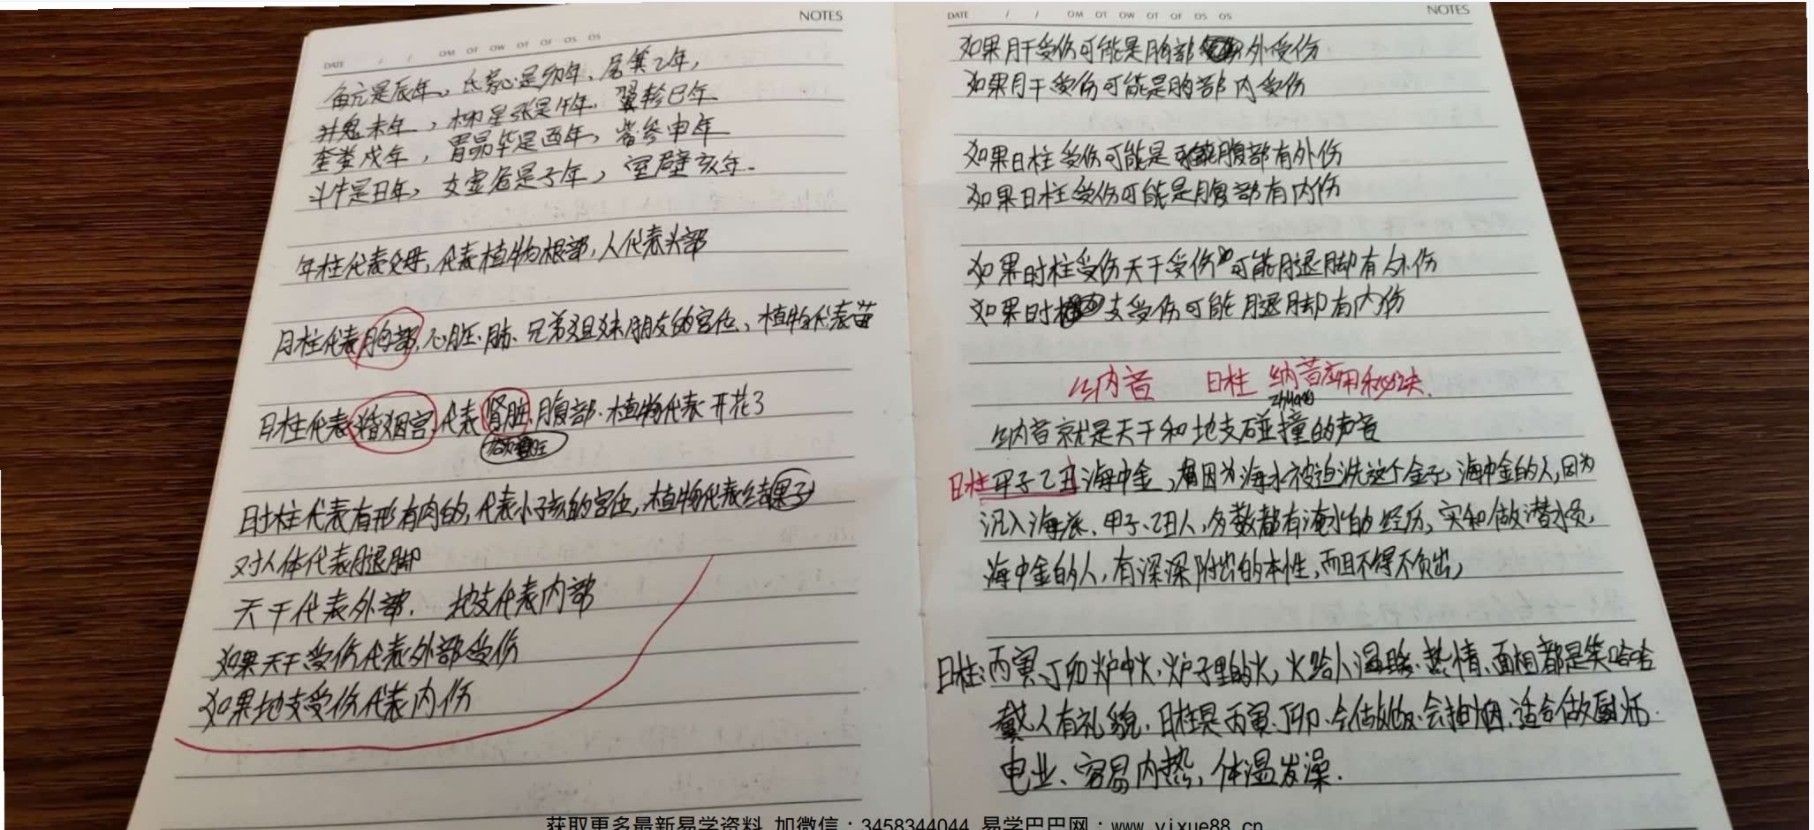 NOTES
DATE / / OM OT OW OT OF OS OS
角亢是辰年、氐房心是卯年、尾箕乙年,
井鬼未年，柳星张是午年. 翼轸巳年
奎娄戌年，胃昴毕是酉年，觜参申年
斗牛是丑年，女虚危是子年，室壁亥年.
年柱代表父母,代表植物根部,人代表头部
月柱代表胸部,心脏.肺.兄弟姐妹朋友的宫位、植物代表苗
日柱代表婚姻宫,代表肾脏.腹部.植物代表开花了
时柱代表有形有肉的,代表小孩的宫位,植物代表结果子
对人体代表腿脚
天干代表外部. 地支代表内部
如果天干受伤代表外部受伤
如果地支受伤代表内伤
DATE / / OM OT OW OT OF OS OS
NOTES
如果月干受伤可能是胸部外受伤
如果月干受伤可能是胸部内受伤
如果日柱受伤可能是腹部有外伤
如果日柱受伤可能是腹部有内伤
如果时柱受伤天干受伤可能腿脚有外伤
如果时支受伤可能腿脚有内伤
纳音 日柱 纳音应用秘诀.
zhuang
纳音就是天干和地支碰撞的声音
日柱甲子乙丑海中金,因为海水被迫洗这个金子,海中金的人,因为
沉入海底、甲子、乙丑人,多数都有淹水的经历,实和做潜水员,
海中金的人,有深深付出的本性,而且不得不负出,
日柱:丙寅、丁卯炉中火,炉子里的火,火给人温暖.热情、面相都是笑哈哈
对人有礼貌,日柱是丙寅丁卯.会做饭.会抽烟.适合做厨师.
电业、容易内热,体温发燥.
获取更多最新易学资料 加微信：3458344044 易学巴巴网：www.yixue88.cn